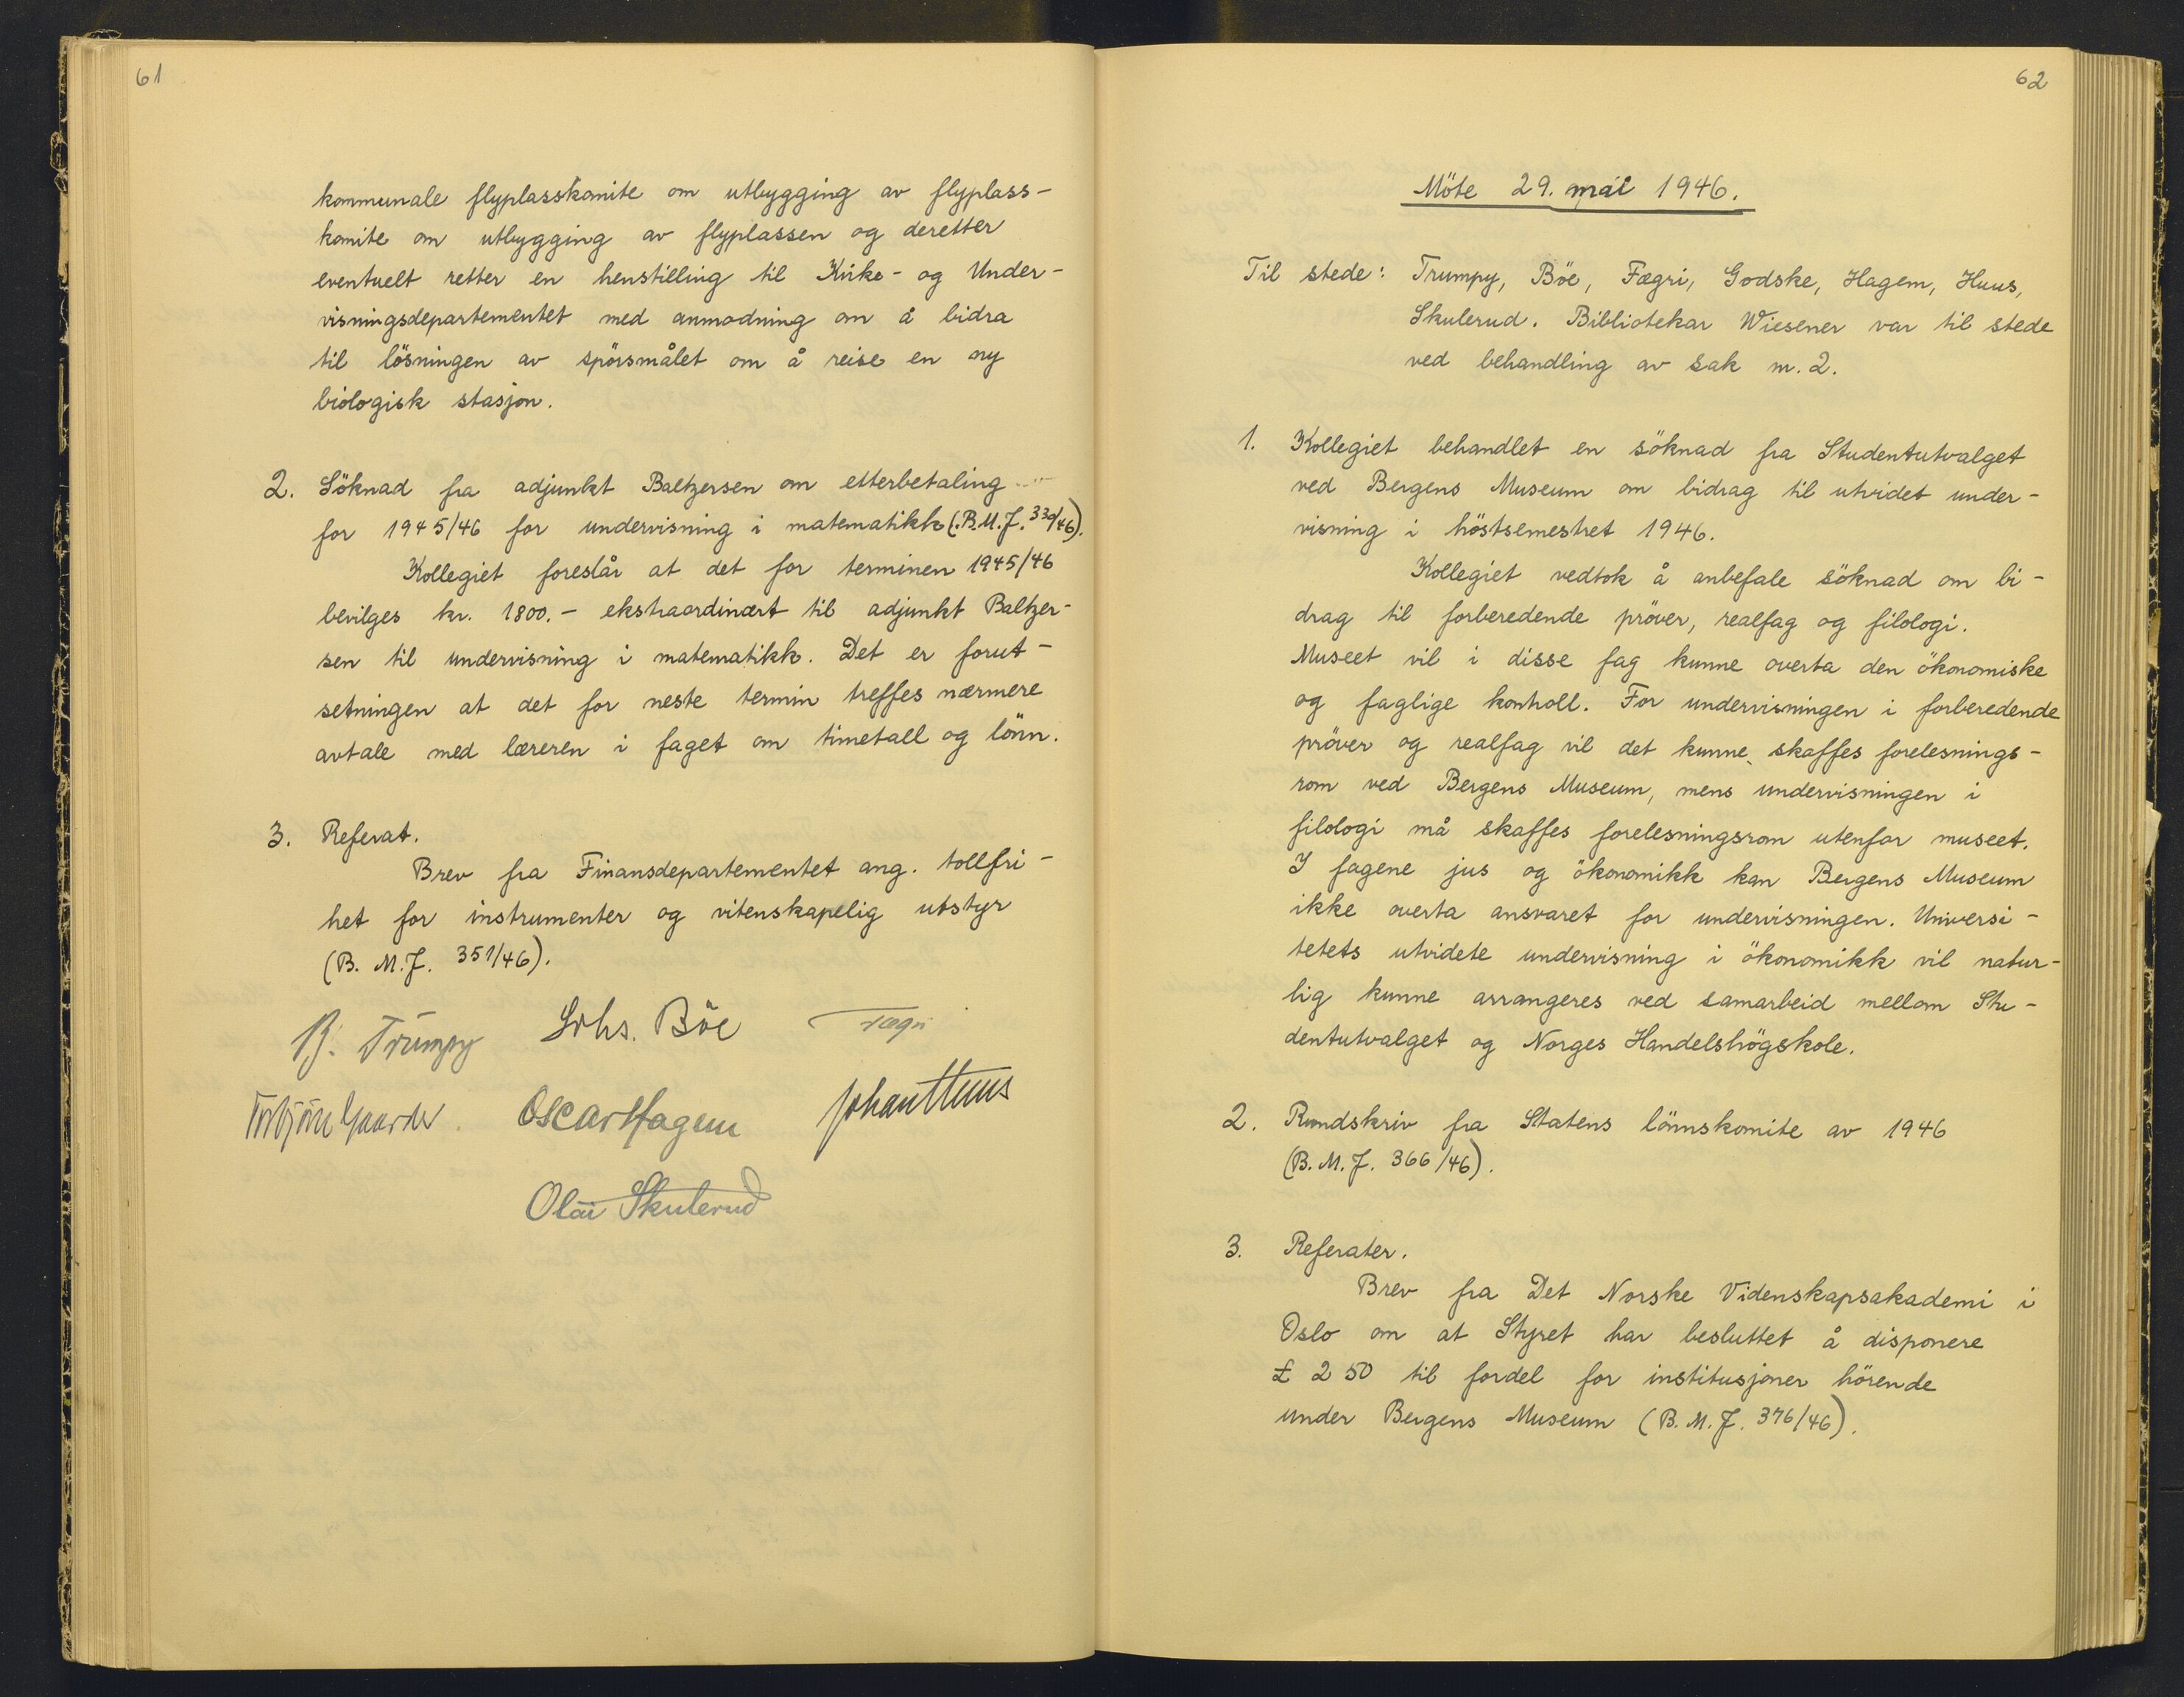 61
kommunale flyplasskomite om utbygging av flyplass-
komite om utbygging av flyplassen og deretter
eventuelt retter en henstilling til Kirke- og Under-
visningsdepartementet med anmodning om å bidra
til lösningen av spörsmålet om å reise en ny
biologisk stasjon.
2. Söknad fra adjunkt Baltzersen om etterbetaling
for 1945/46 for undervisning i matematikk (B.M.J. 330/46).
Kollegiet foreslår at det for terminen 1945/46
bevilges kr. 1800.- ekstraordinært til adjunkt Baltzer-
sen til undervisning i matematikk. Det er forut-
setningen at det for neste termin treffes nærmere
avtale med læreren i faget om timetall og lönn.
3. Referat.
Brev fra Finansdepartementet ang. tollfri-
het for instrumenter og vitenskapelig utstyr
(B. M. J. 351/46).
B. Trumpy Johs. Böe Fægri
Torbjörn Gaarder Oscar Hagem Johan Huus
Olai Skulerud
62
Möte 29. mai 1946.
Til stede: Trumpy, Böe, Fægri, Godske, Hagem, Huus,
Skulerud. Bibliotekar Wiesener var til stede
ved behandling av sak nr. 2.
1. Kollegiet behandlet en söknad fra Studentutvalget
ved Bergens Museum om bidrag til utvidet under-
visning i höstsemestret 1946.
Kollegiet vedtok å anbefale söknad om bi-
drag til forberedende pröver, realfag og filologi.
Museet vil i disse fag kunne overta den ökonomiske
og faglige kontroll. For undervisningen i forberedende
pröver og realfag vil det kunne skaffes forelesnings-
rom ved Bergens Museum, mens undervisningen i
filologi må skaffes forelesningsrom utenfor museet.
I fagene jus og ökonomikk kan Bergens Museum
ikke overta ansvaret for undervisningen. Universi-
tetets utvidete undervisning i ökonomikk vil natur-
lig kunne arrangeres ved samarbeid mellom Stu-
dentutvalget og Norges Handelshögskole.
2. Rundskriv fra Statens lönnskomite av 1946
(B. M. J. 366/46).
3. Referater.
Brev fra Det Norske Videnskapsakademi i
Oslo om at Styret har besluttet å disponere
£ 250 til fordel for institusjoner hörende
under Bergens Museum (B. M. J. 376/46).